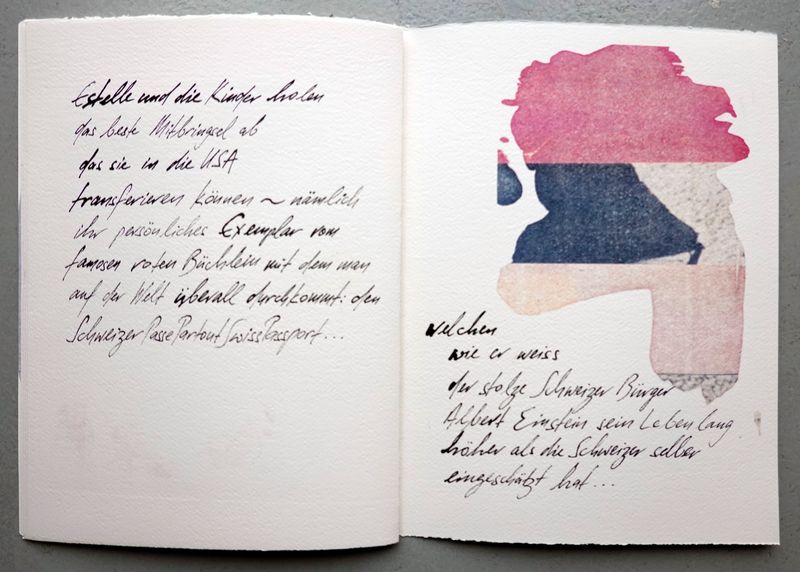 Estelle und die Kinder holen
das beste Mitbringsel ab
das sie in die USA
transferieren können ~ nämlich
ihr persönliches Exemplar vom
famosen roten Büchlein mit dem man
auf der Welt überall durchkommt: den
SchweizerPassePartoutSwissPassport...
welchen
wie er weiss
der stolze Schweizer Bürger
Albert Einstein sein Leben lang
höher als die Schweizer selber
eingeschätzt hat...